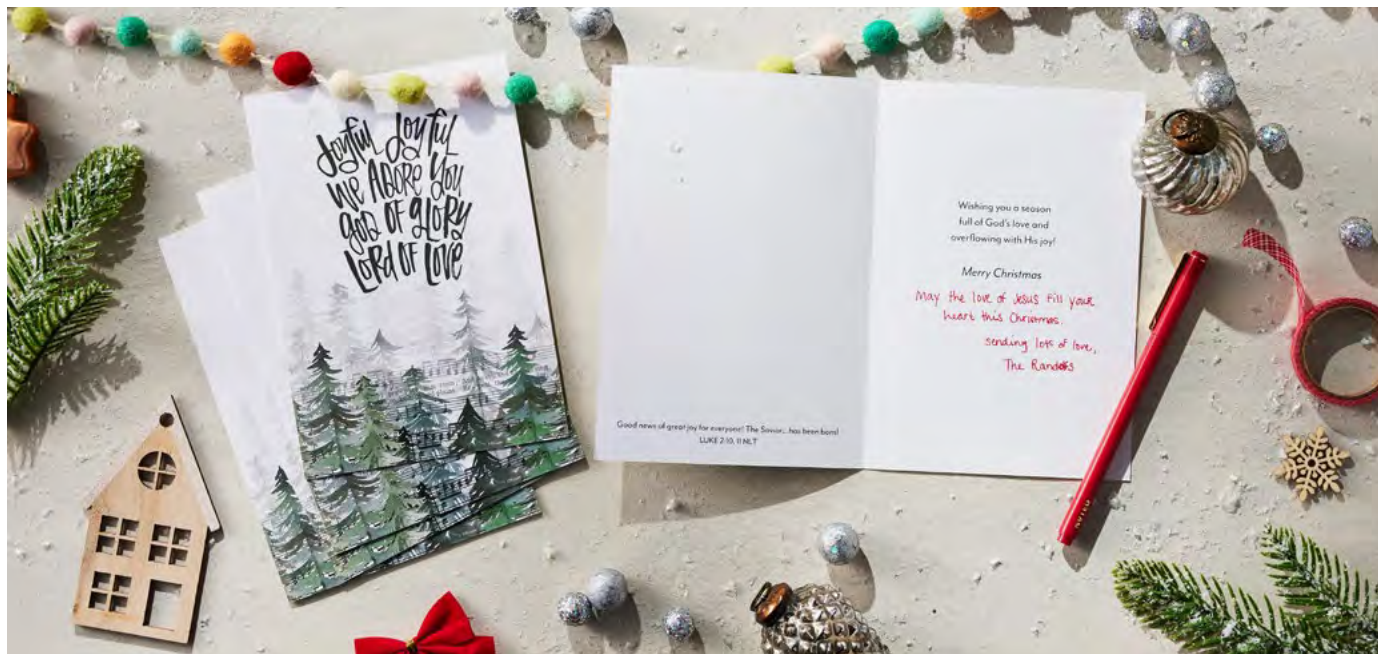 Joyful Joyful
We Adore You
God of Glory
Lord of Love
Good news of great joy for everyone! The Savior... has been born!
LUKE 2:10, 11 NLT
Wishing you a season
full of God's love and
overflowing with His joy!
Merry Christmas
May the love of Jesus fill your
heart this Christmas.
sending lots of love,
The Randolfs
NOTED